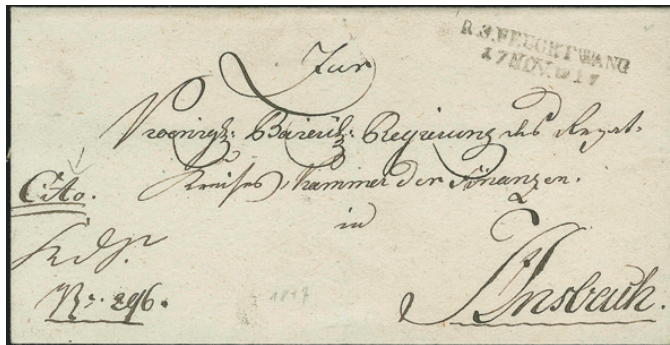 R.3.FEUCHTWANG
17 NOV. 1817
Zur
Koenigl: Baierisch: Regierung des Rezat-
Kreises, Kammer der Finanzen.
in
Cito.
Ansbach.
Nr. 296.
1817